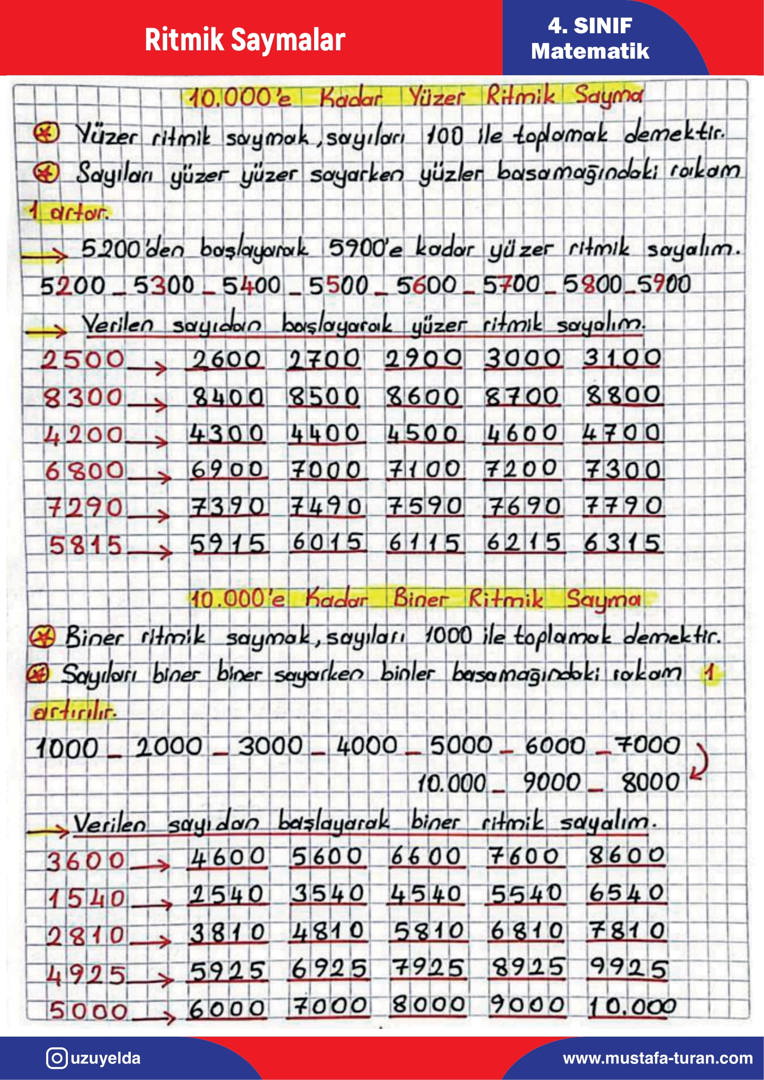 Ritmik Saymalar
4. SINIF
Matematik
10.000'e Kadar Yüzer Ritmik Sayma
Yüzer ritmik saymak, sayıları 100 ile toplamak demektir.
Sayıları yüzer yüzer sayarken yüzler basamağındaki rakam
1 artar.
→ 5200'den başlayarak 5900'e kadar yüzer ritmik sayalım.
5200 _ 5300 _ 5400 _ 5500 _ 5600 _ 5700 _ 5800 _ 5900
→ Verilen sayıdan başlayarak yüzer ritmik sayalım.
2500 → 2600 2700 2900 3000 3100
8300 → 8400 8500 8600 8700 8800
4200 → 4300 4400 4500 4600 4700
6800 → 6900 7000 7100 7200 7300
7290 → 7390 7490 7590 7690 7790
5815 → 5915 6015 6115 6215 6315
10.000'e Kadar Biner Ritmik Sayma
Biner ritmik saymak, sayıları 1000 ile toplamak demektir.
Sayıları biner biner sayarken binler basamağındaki rakam 1
artırılır.
1000 _ 2000 _ 3000 _ 4000 _ 5000 _ 6000 _ 7000
10.000 _ 9000 _ 8000
→ Verilen sayıdan başlayarak biner ritmik sayalım.
3600 → 4600 5600 6600 7600 8600
1540 → 2540 3540 4540 5540 6540
2810 → 3810 4810 5810 6810 7810
4925 → 5925 6925 7925 8925 9925
5000 → 6000 7000 8000 9000 10.000
uzuyelda
www.mustafa-turan.com